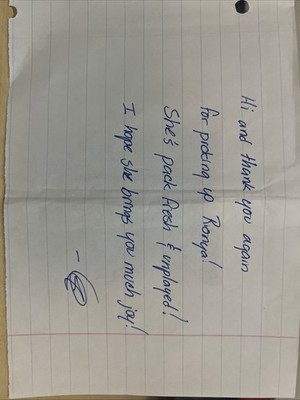 Hi and thank you again
for picking up Ronya!
She's pack fresh & unplayed!
I hope she brings you much joy!